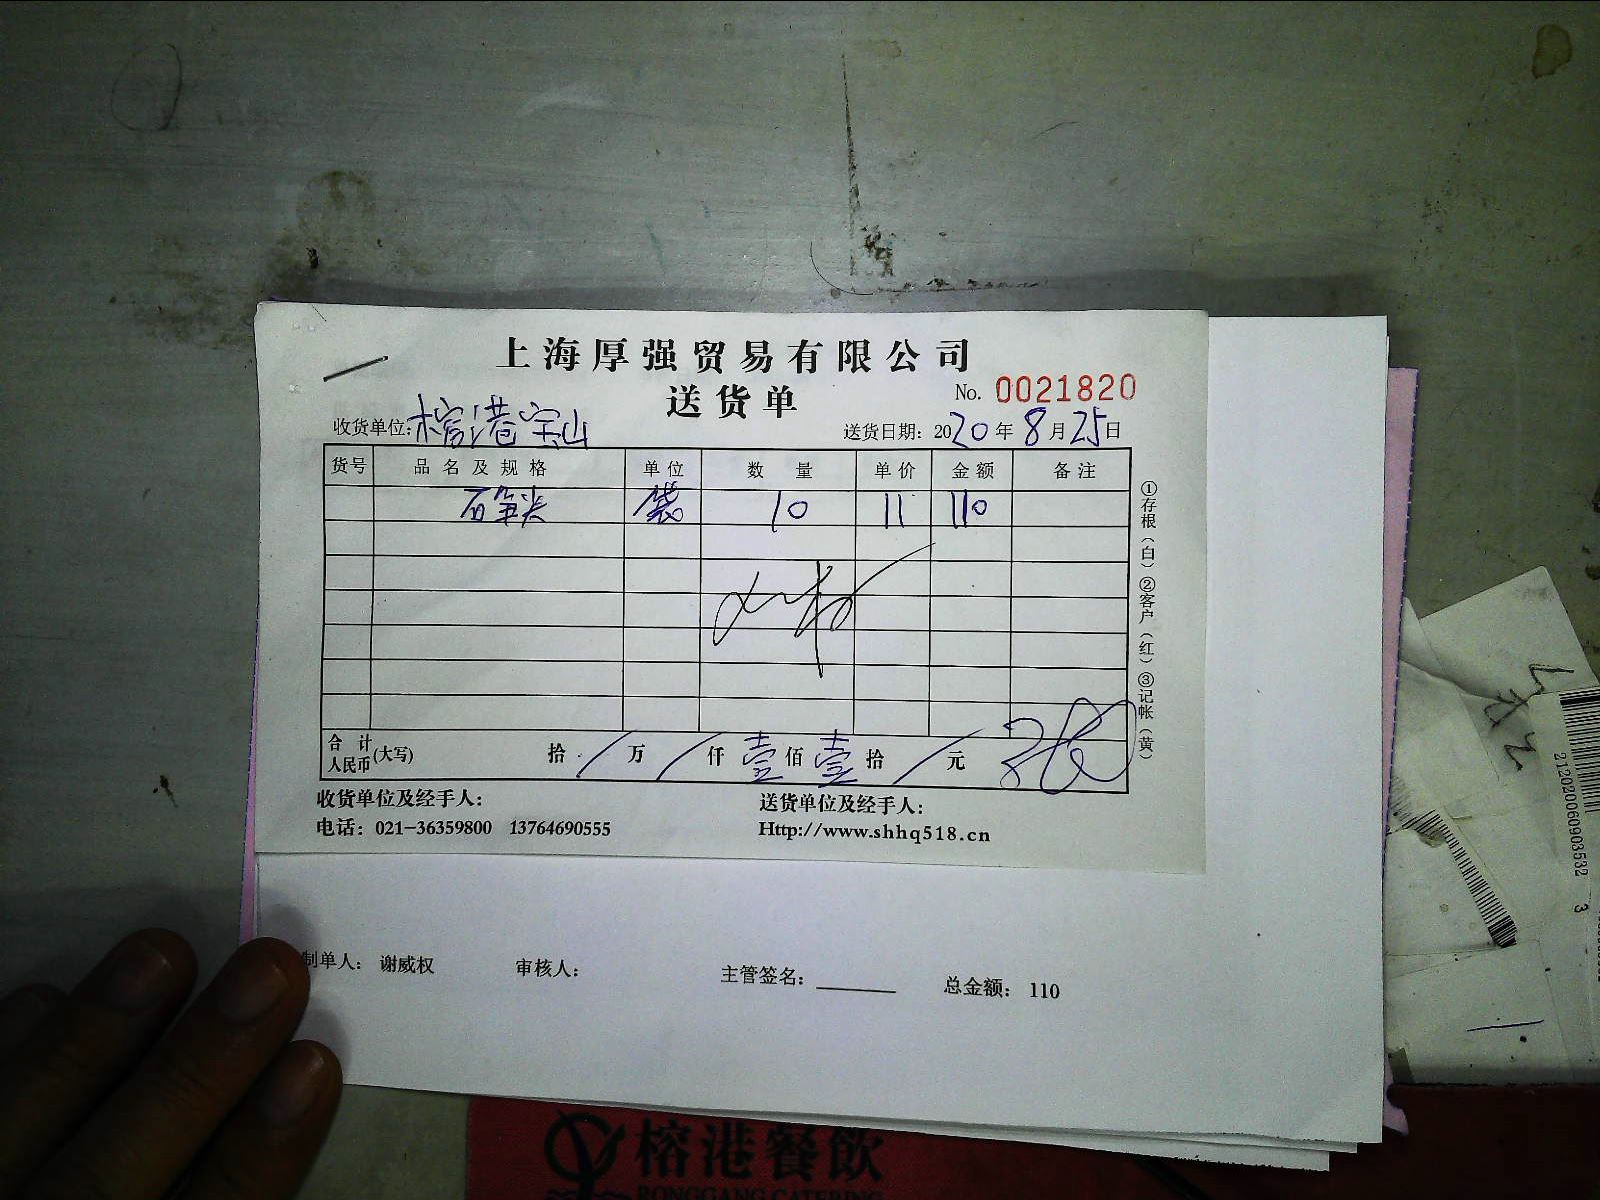 上海厚强贸易有限公司
送货单
No. 0021820
收货单位:榕港宝山
送货日期: 2020年8月25日
货号 品名及规格 单位 数量 单价 金额 备注
石笋尖 袋 10 11 110
合计人民币(大写) 拾 / 万 / 仟 壹 佰 壹 拾 / 元
①存根(白)②客户(红)③记帐(黄)
收货单位及经手人:
送货单位及经手人:
电话: 021-36359800 13764690555
Http://www.shhq518.cn
制单人: 谢威权 审核人: 主管签名: 总金额: 110
212020060903532 3
榕港餐飲
RONGGANG CATERING